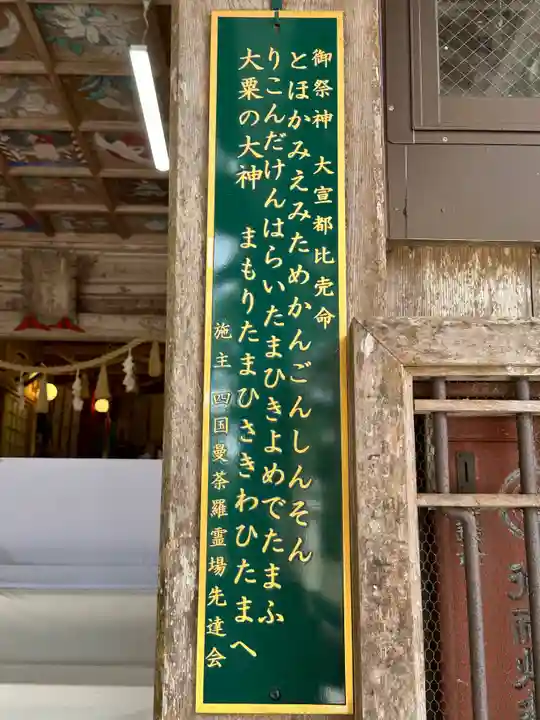 御祭神　大宣都比売命
とほかみえみためかんごんしんそん
りこんだけんはらいたまひきよめでたまふ
大粟の大神　まもりたまひさきわひたまへ
施主　四国曼荼羅霊場先達会